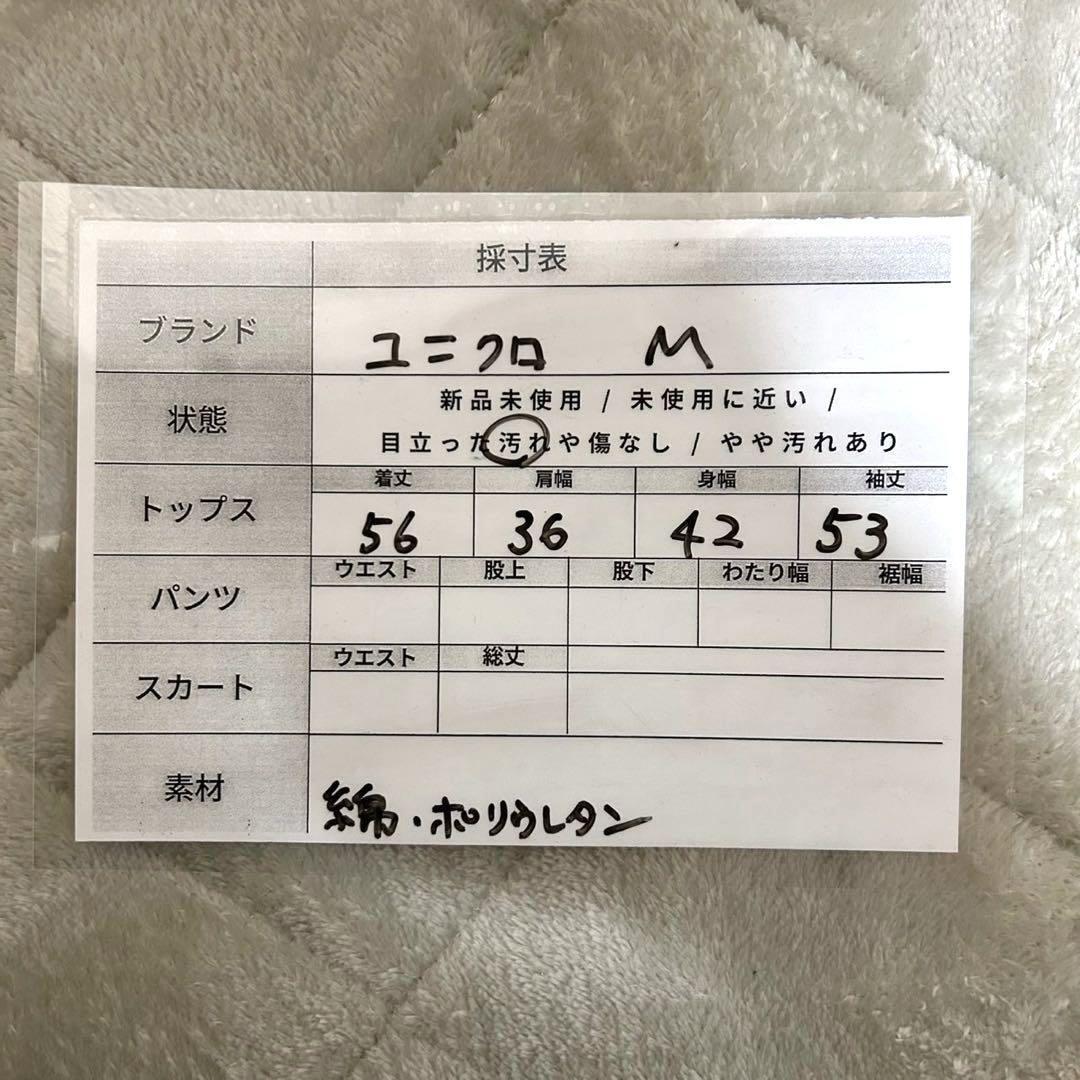 採寸表
ブランド ユニクロ M
状態 新品未使用 / 未使用に近い /
目立った汚れや傷なし / やや汚れあり
着丈 肩幅 身幅 袖丈
トップス 56 36 42 53
ウエスト 股上 股下 わたり幅 裾幅
パンツ
ウエスト 総丈
スカート
素材 綿・ポリウレタン